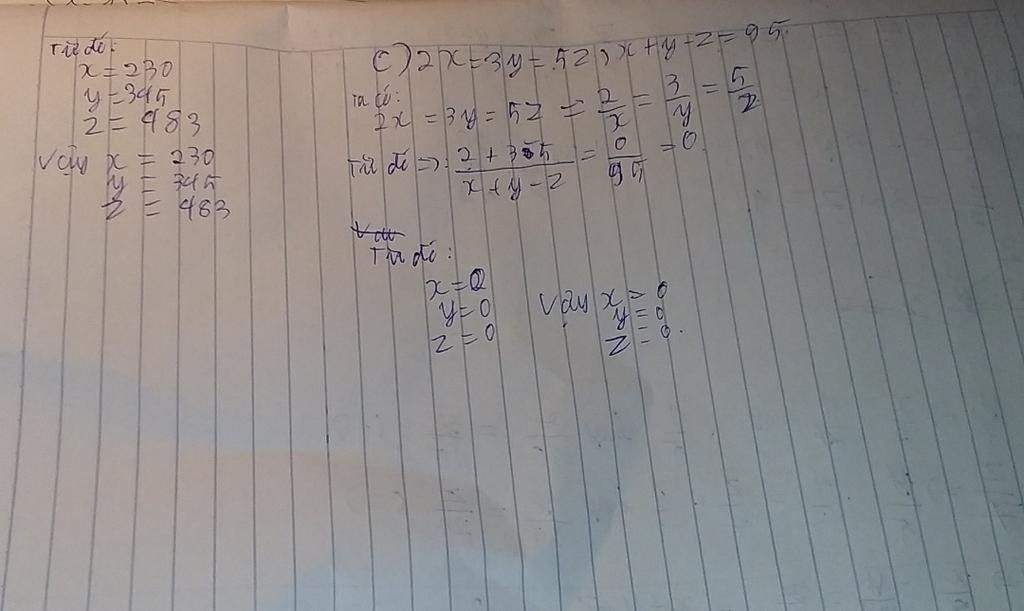 Từ đó:
x = 230
y = 345
z = 483
Vậy x = 230
y = 345
z = 483
c) 2x = 3y = 5z ; x + y - z = 95.
Ta có:
2x = 3y = 5z = 2/x = 3/y = 5/z
Từ đó => : (2 + 3 - 5)/(x + y - z) = 0/95 = 0.
Từ đó :
x = 0
y = 0
z = 0
Vậy x = 0
y = 0
z = 0.